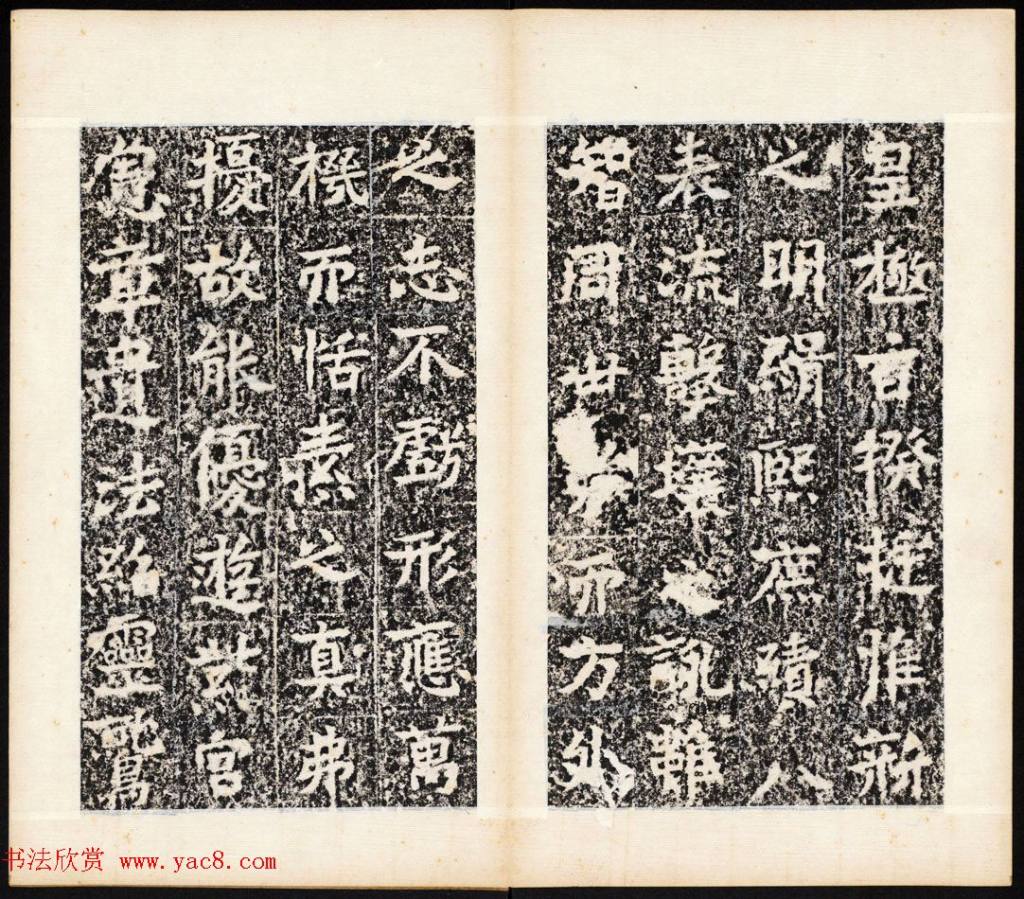 皇極百揆挺惟新
之明緝熙庶績八
表流擊壤之訊雖
智周世務而方外
之志不虧形應萬
機而恬素之真弗
擾故能優遊紫宮
憲章遺法紹靈鷲
书法欣赏 www.yac8.com